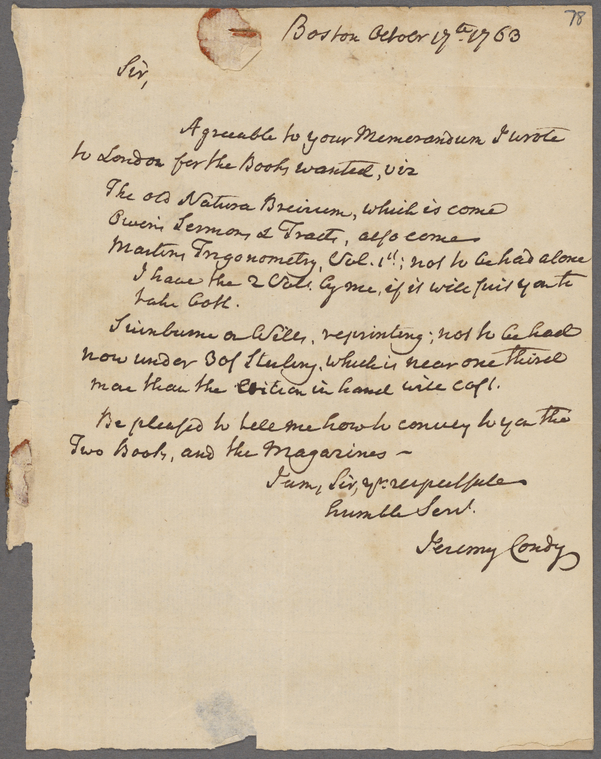 78
Boston Octobr 17th 1763
Sir,
Agreeable to your Memorandum I wrote
to London for the Books wanted, viz
The old Natura Brevium, which is come
Owen's Sermons & Tracts, also come
Martins Trigonometry, Vol. 1st; not to be had alone
I have the 2 Vols. by me, if it will suit you to
take both.
Swinburne on Wills, reprinting; not to be had
now under 30/ Sterling, which is near one third
more than the Edition in hand will cost.
Be pleased to tell me how to convey to you the
Two Books, and the Magazines –
I am, Sir, yr. respectful
humble Servt.
Jeremy Condy